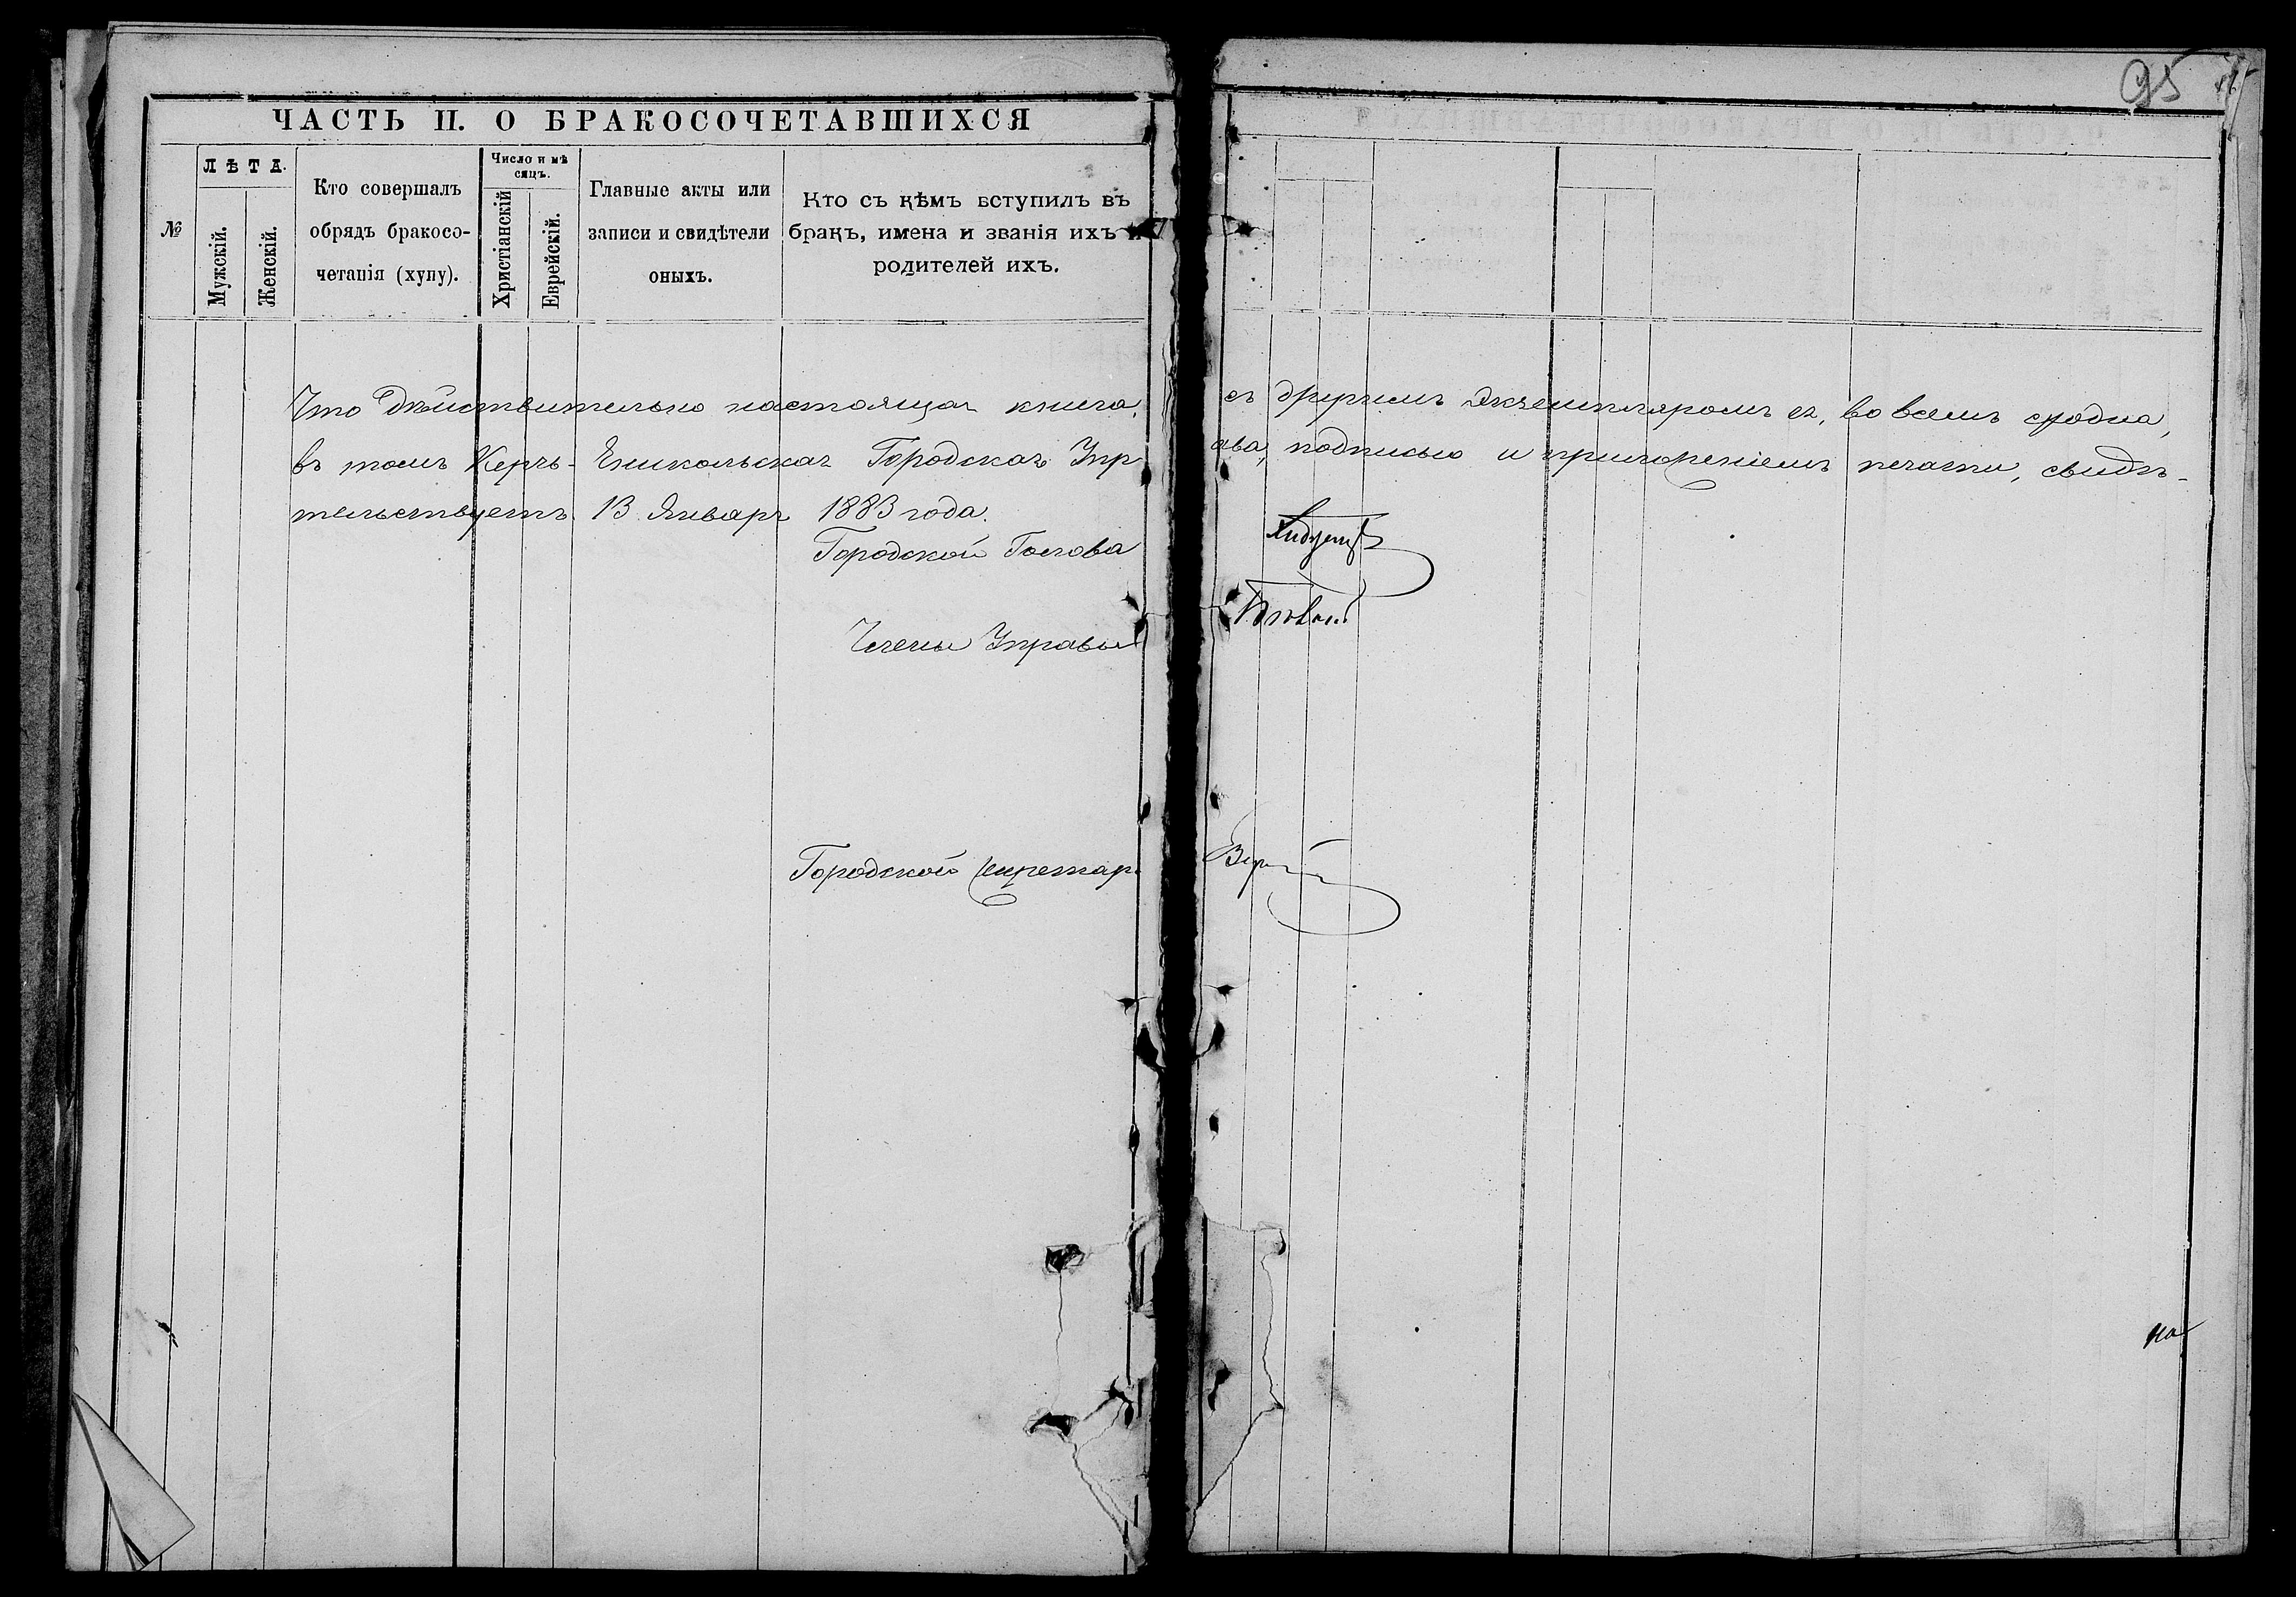 95
ЧАСТЬ II. О БРАКОСОЧЕТАВШИХСЯ
№
ЛѢТА.
Мужскій.
Женскій.
Кто совершалъ
обрядъ бракосо-
четанія (хупу).
Число и мѣ
сяцъ.
Христіанскій
Еврейскій.
Главные акты или
записи и свидѣтели
оныхъ.
Кто съ кѣмъ вступилъ въ
бракъ, имена и званія ихъ и
родителей ихъ.
Что дѣйствительно настоящая книга, съ другимъ экземпляромъ ея, во всемъ сходна,
въ томъ Керчь-Еникольская Городская Управа, подписью и приложеніемъ печати, свидѣ-
тельствуетъ. 13 Января 1883 года.
Городской Голова
Члены Управы
Городской Секретарь
на